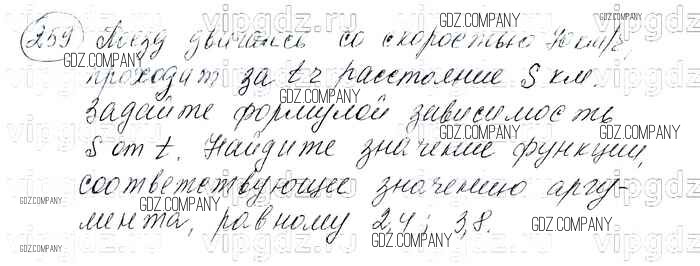 259 Поезд двигаясь со скоростью 70 км/ч,
проходит за t ч расстояние S км.
Задайте формулой зависимость
S от t. Найдите значение функции,
соответствующее значению аргу-
мента, равному 2,4; 3,8.
GDZ.COMPANY
GDZ.COMPANY
GDZ.COMPANY
GDZ.COMPANY
GDZ.COMPANY
GDZ.COMPANY
GDZ.COMPANY
GDZ.COMPANY
GDZ.COMPANY
GDZ.COMPANY
GDZ.COMPANY